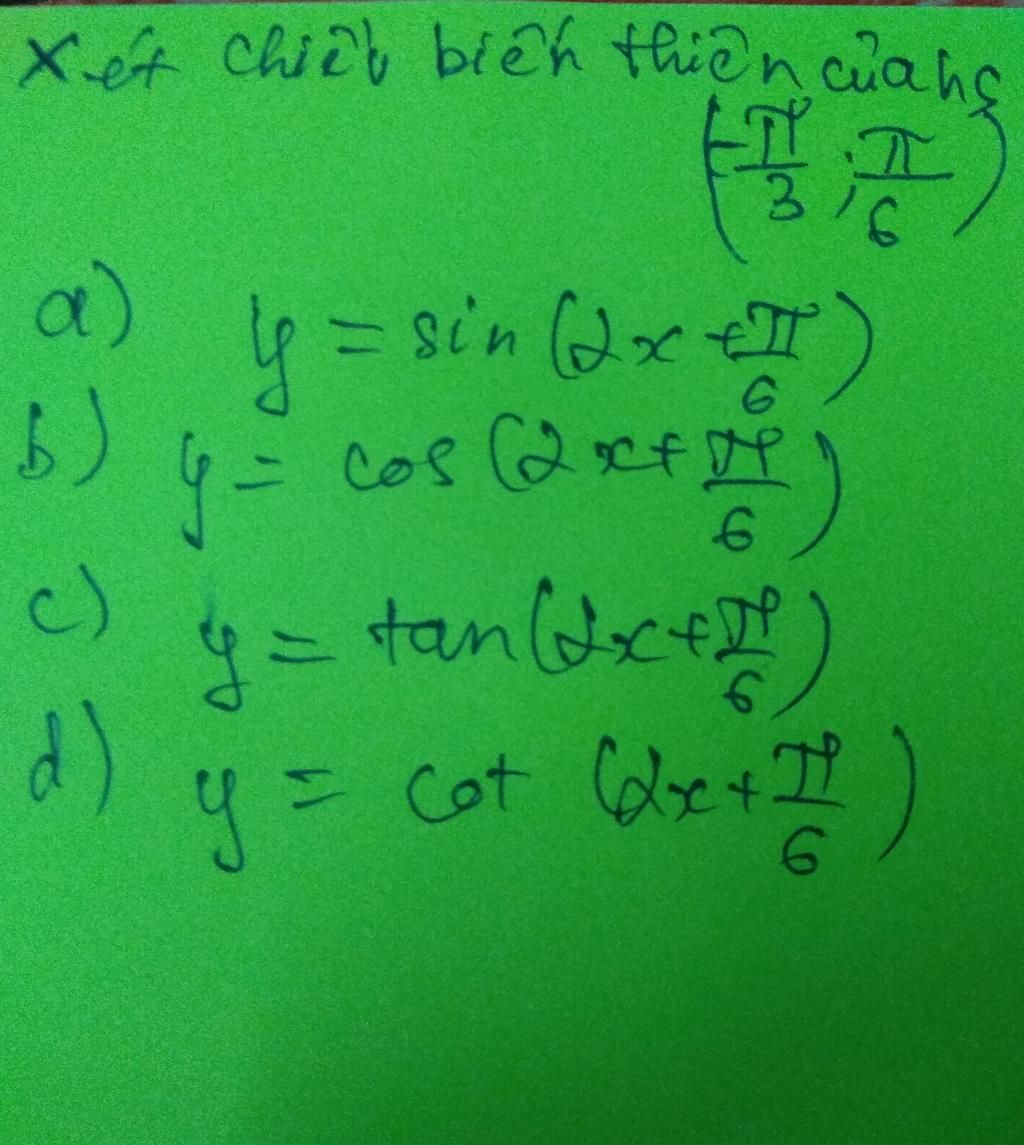 Xét chiều biến thiên của hs
(-π/3 ; π/6)
a) y = sin (2x + π/6)
b) y = cos (2x + π/6)
c) y = tan (2x + π/6)
d) y = cot (2x + π/6)